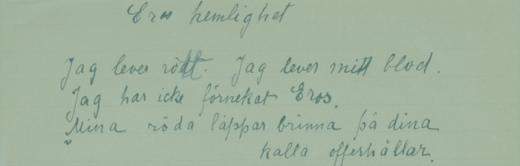 Eros hemlighet
Jag lever rött. Jag lever mitt blod.
Jag har icke förnekat Eros.
Mina röda läppar brinna på dina
kalla offerhällar.